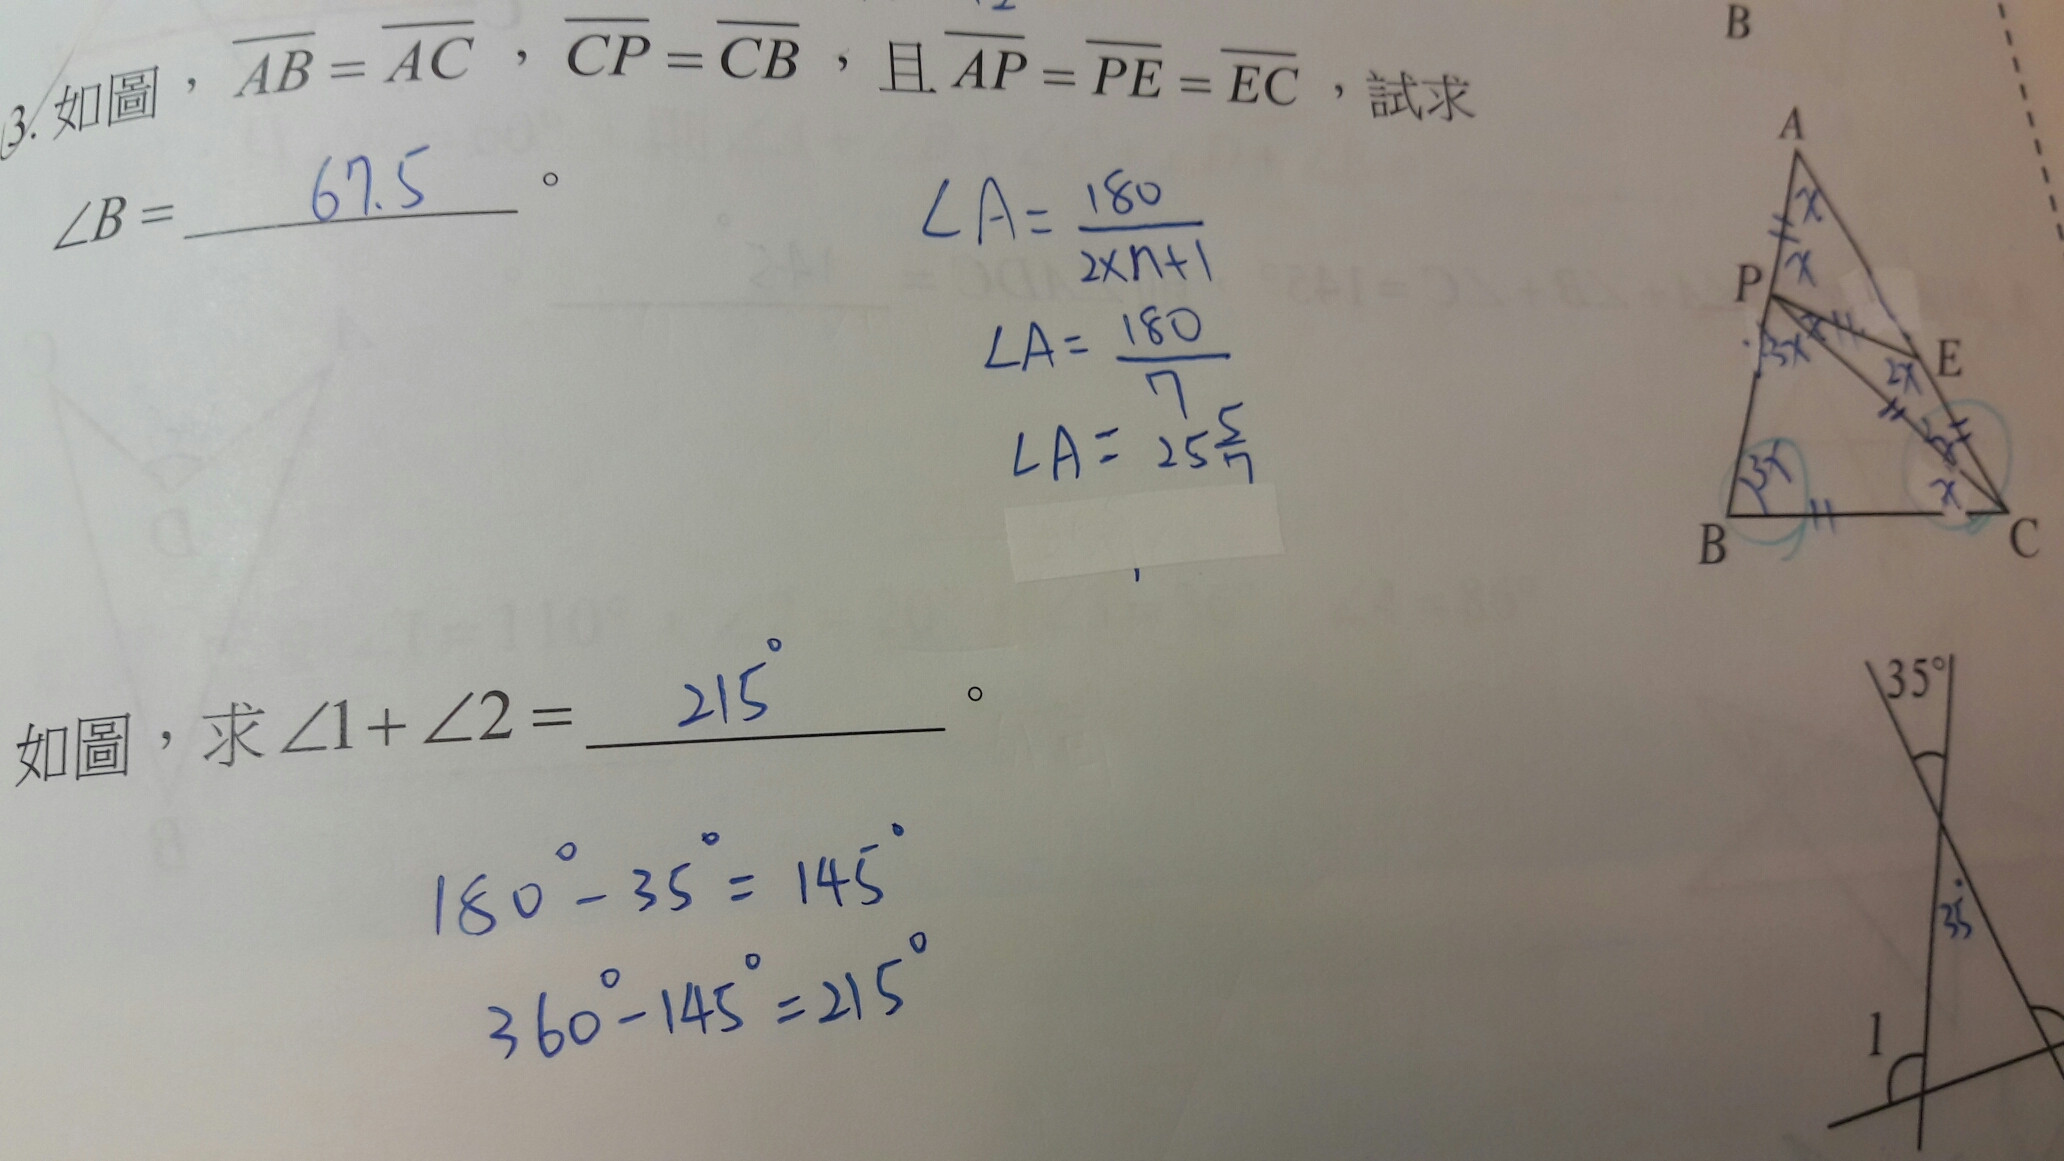 3. 如圖，AB = AC，CP = CB，且 AP = PE = EC，試求
∠B = 67.5 。
∠A = 180 / 2×n+1
∠A = 180 / 7
∠A = 25 5/7
B
A
x
x
P
3x
x
E
2x
3x
x
B
C
如圖，求∠1 + ∠2 = 215° 。
180° - 35° = 145°
360° - 145° = 215°
35°
35
1